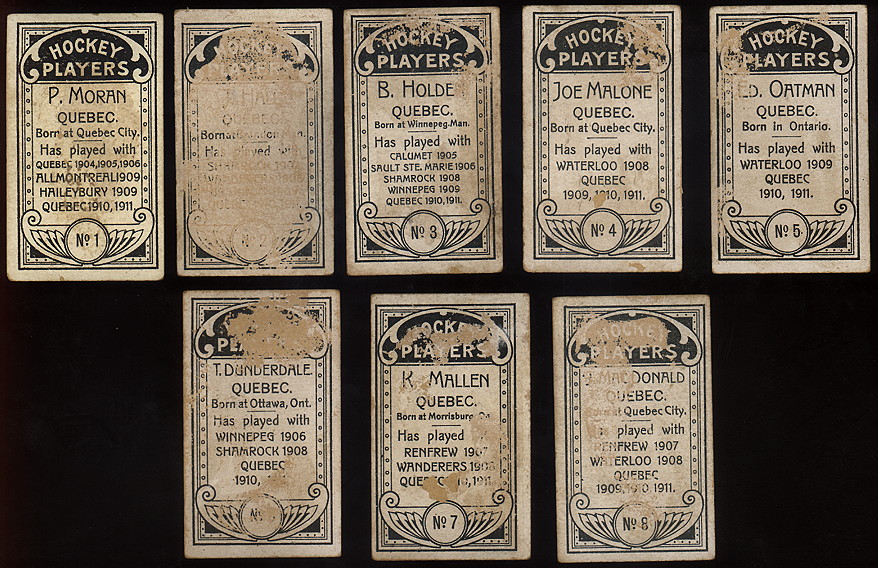 HOCKEY
PLAYERS
P. MORAN
QUEBEC.
Born at Quebec City.
Has played with
QUEBEC 1904,1905,1906
ALLMONTREAL1909
HAILEYBURY 1909
QUEBEC 1910, 1911.
No 1
HOCKEY
HALL
QUEBEC.
Born at
Has played with
HOCKEY
PLAYERS
B. HOLDE
QUEBEC.
Born at Winnepeg.Man.
Has played with
CALUMET 1905
SAULT STE. MARIE 1906
SHAMROCK 1908
WINNEPEG 1909
QUEBEC 1910,1911.
No 3
HOCKEY
PLAYERS
JOE MALONE
QUEBEC.
Born at Quebec City.
Has played with
WATERLOO 1908
QUEBEC
1909, 1910, 1911.
No 4
HOCKEY
PLAYERS
ED. OATMAN
QUEBEC.
Born in Ontario.
Has played with
WATERLOO 1909
QUEBEC
1910, 1911.
No 5.
T. DUNDERDALE
QUEBEC.
Born at Ottawa, Ont.
Has played with
WINNEPEG 1906
SHAMROCK 1908
QUEBEC
1910,
HOCKEY
PLAYERS
K. MALLEN
QUEBEC.
Born at Morrisburg
Has played
RENFREW 190
WANDERERS 1908
QUEBEC
No 7
HOCKEY
PLAYERS
MACDONALD
QUEBEC.
Born at Quebec City.
Has played with
RENFREW 1907
WATERLOO 1908
QUEBEC
1909, 1910 1911.
No 8